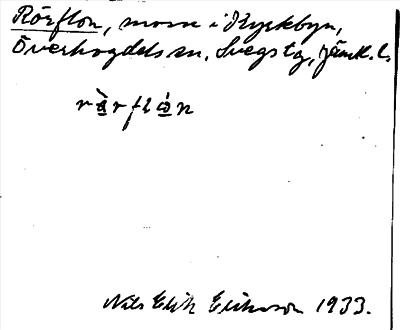 Rörflon, mosse i Kyrkbyn,
Överhogdals sn. Svegs tg, Jämtl. l.
rə̀rflón
Nils Erik Eriksson 1933.